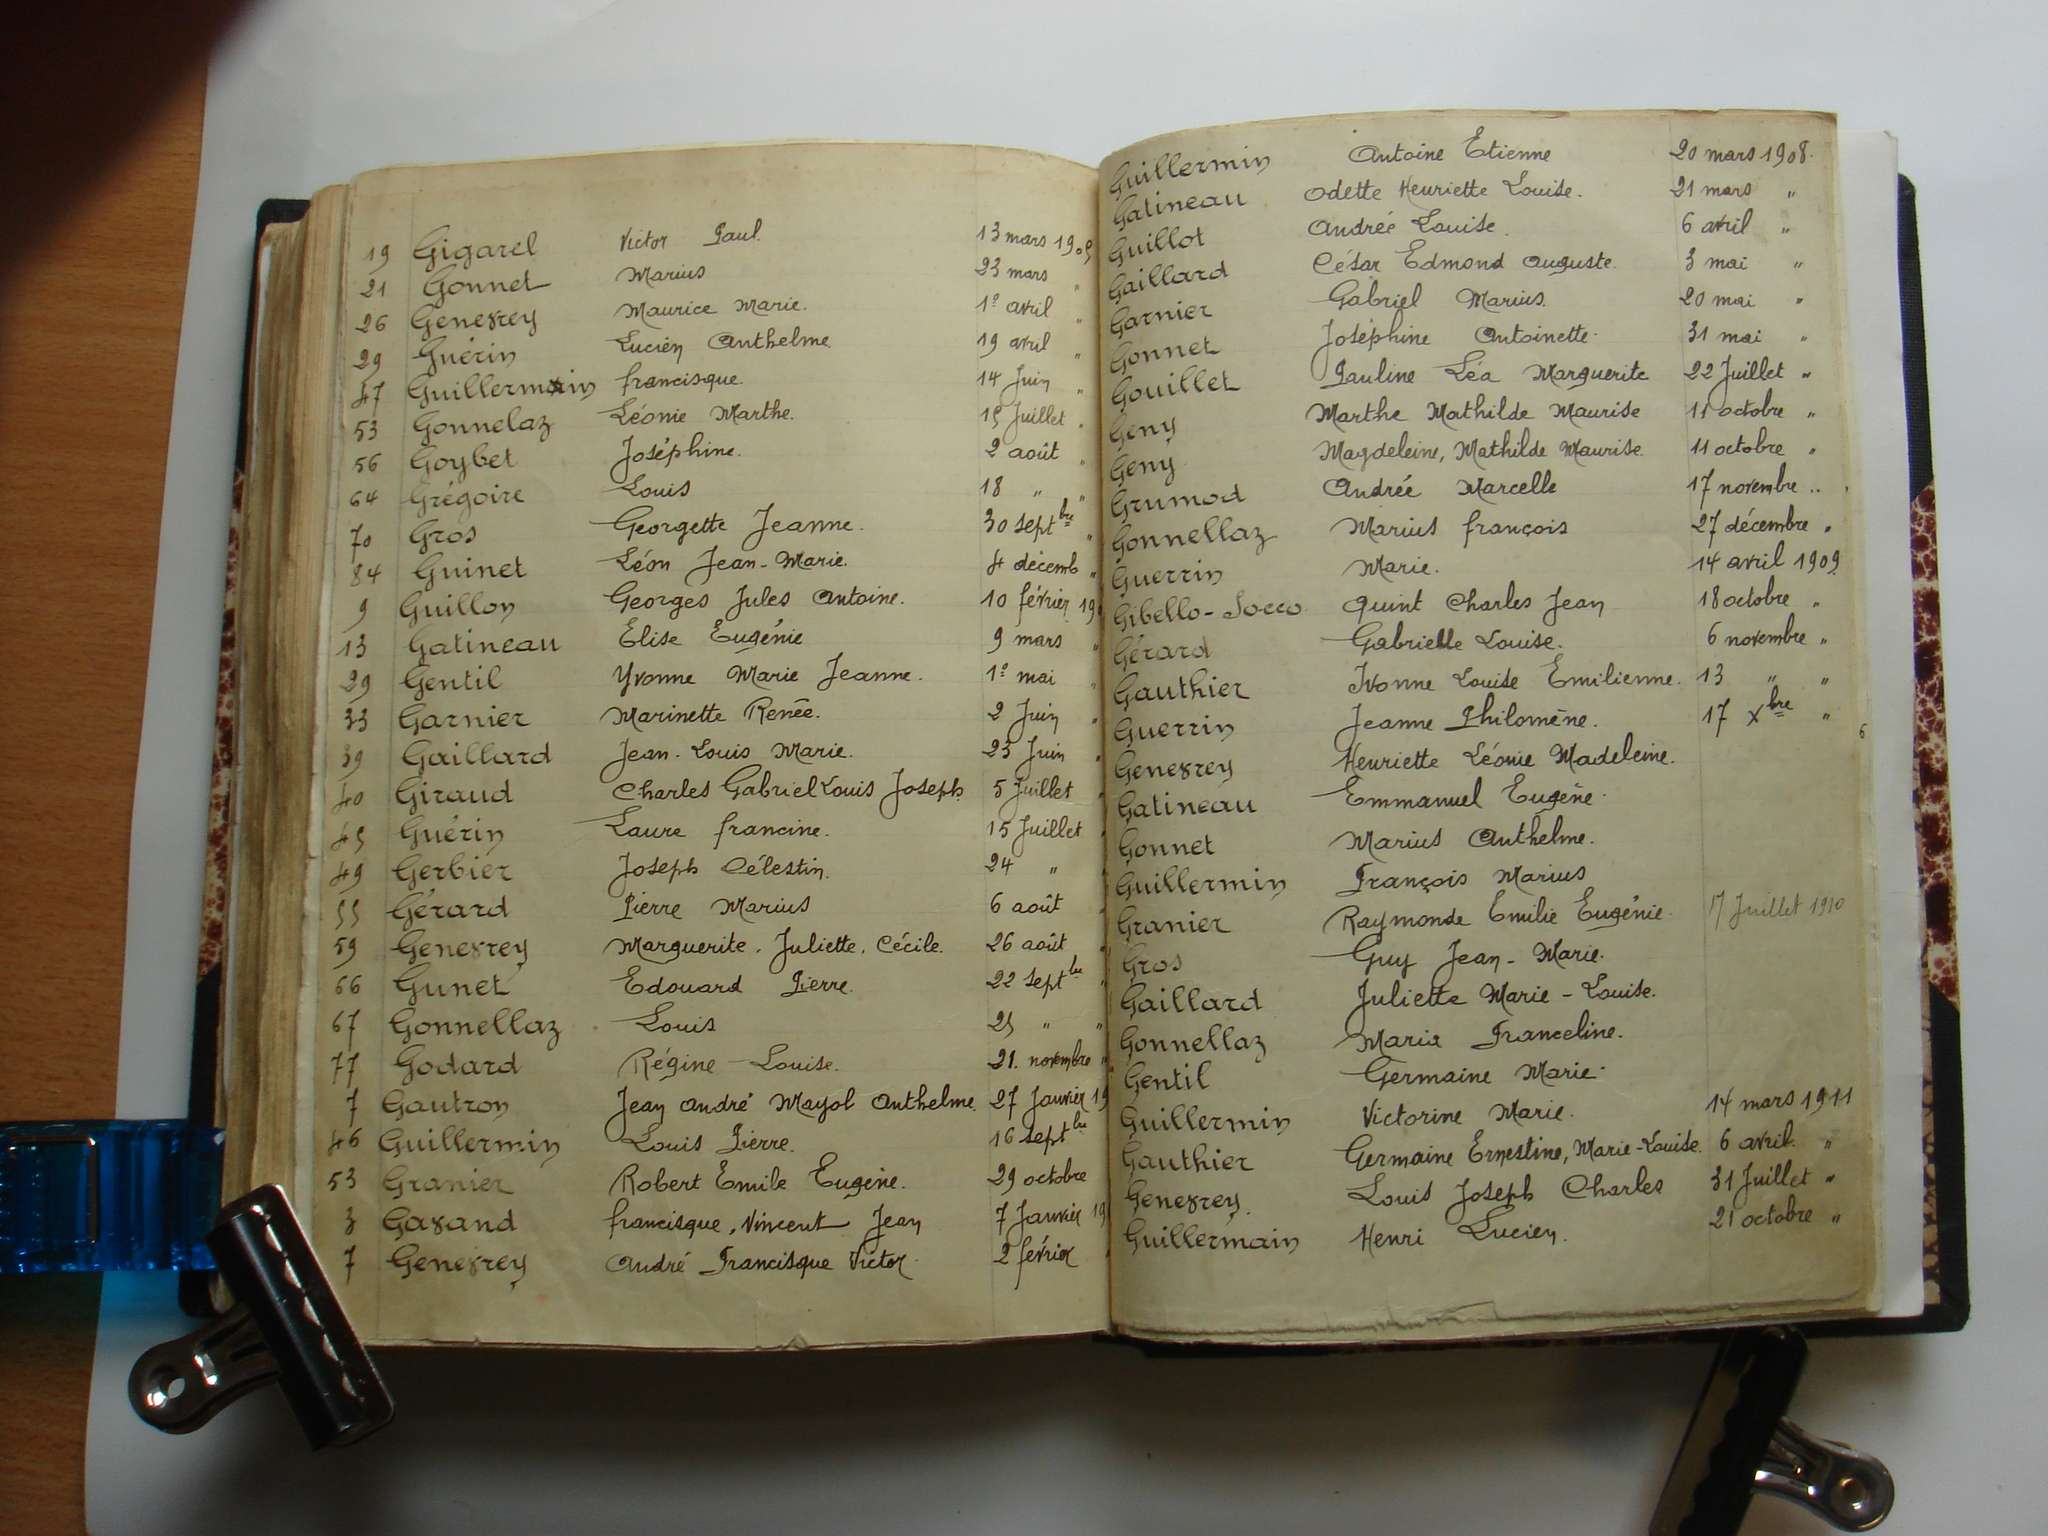 19 Gigarel Victor Paul. 13 mars 1905
21 Gonnet Marius 23 mars "
26 Genevrey Maurice Marie. 1º avril "
29 Guérin Lucien Anthelme 19 avril "
47 Guillermin francisque. 14 Juin "
53 Gonnelaz Léonie Marthe. 15 Juillet "
56 Goybet Joséphine. 2 août "
64 Grégoire Louis 18 " "
70 Gros Georgette Jeanne. 30 septbre "
84 Guinet Léon Jean-Marie. 4 décemb "
9 Guillon Georges Jules Antoine. 10 février 19
13 Gatineau Elise Eugénie 9 mars "
29 Gentil Yvonne Marie Jeanne. 1º mai "
33 Garnier Marinette Renée. 2 Juin "
39 Gaillard Jean-Louis Marie. 23 Juin "
40 Giraud Charles Gabriel Louis Joseph 5 Juillet "
45 Guérin Laure francine. 15 Juillet "
49 Gerbier Joseph Célestin. 24 " "
55 Gérard Pierre Marius 6 août
59 Genevrey Marguerite, Juliette, Cécile. 26 août "
66 Gunet Edouard Pierre. 22 septbre "
67 Gonnellaz Louis 25 " "
77 Godard Régine-Louise. 21. novembre "
7 Gautron Jean André Mayol Anthelme. 27 Janvier 19
46 Guillermin Louis Pierre. 16 septbre
53 Granier Robert Emile Eugène. 29 octobre
3 Gavand francisque, Vincent Jean 7 Janvier 19
7 Genevrey André Francisque Victor. 2 février
Guillermin Antoine Etienne 20 mars 1908.
Gatineau Odette Henriette Louise. 21 mars "
Guillot Andrée Louise. 6 avril "
Gaillard César Edmond Auguste. 3 mai "
Garnier Gabriel Marius. 20 mai "
Gonnet Joséphine Antoinette. 31 mai "
Gouillet Pauline Léa Marguerite 22 Juillet "
Geny Marthe Mathilde Maurise 11 octobre "
Geny Magdeleine, Mathilde Maurise. 11 octobre "
Grumod Andrée Marcelle 17 novembre "
Gonnellaz Marius françois 27 décembre "
Guerrin Marie. 14 avril 1909
Gibello-Socco Quint Charles Jean 18 octobre "
Gérard Gabrielle Louise. 6 novembre "
Gauthier Yvonne Louise Emilienne. 13 " "
Guerrin Jeanne Philomène. 17 Xbre "
Genevrey Henriette Léonie Madeleine.
Gatineau Emmanuel Eugène.
Gonnet Marius Anthelme.
Guillermin François Marius
Granier Raymonde Emilie Eugénie. 17 Juillet 1910
Gros Guy Jean-Marie.
Gaillard Juliette Marie-Louise.
Gonnellaz Maria Franceline.
Gentil Germaine Marie.
Guillermin Victorine Marie. 14 mars 1911
Gauthier Germaine Ernestine, Marie-Louise. 6 avril. "
Genevrey. Louis Joseph Charles 31 Juillet "
Guillermain Henri Lucien. 21 octobre "